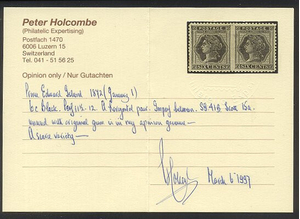 Peter Holcombe
(Philatelic Expertising)
Postfach 1470
6006 Luzern 15
Switzerland
Tel. 041 - 51 56 25
POSTAGE POSTAGE
SIX CENTS SIX CENTS
Opinion only / Nur Gutachten
Prince Edward Island 1872 (January 1)
6c Black. Perf 11½-12. A horizontal pair. Imperf between. SG 41
unused with original gum is in my opinion genuine —
A scarce variety —
March 6 1997